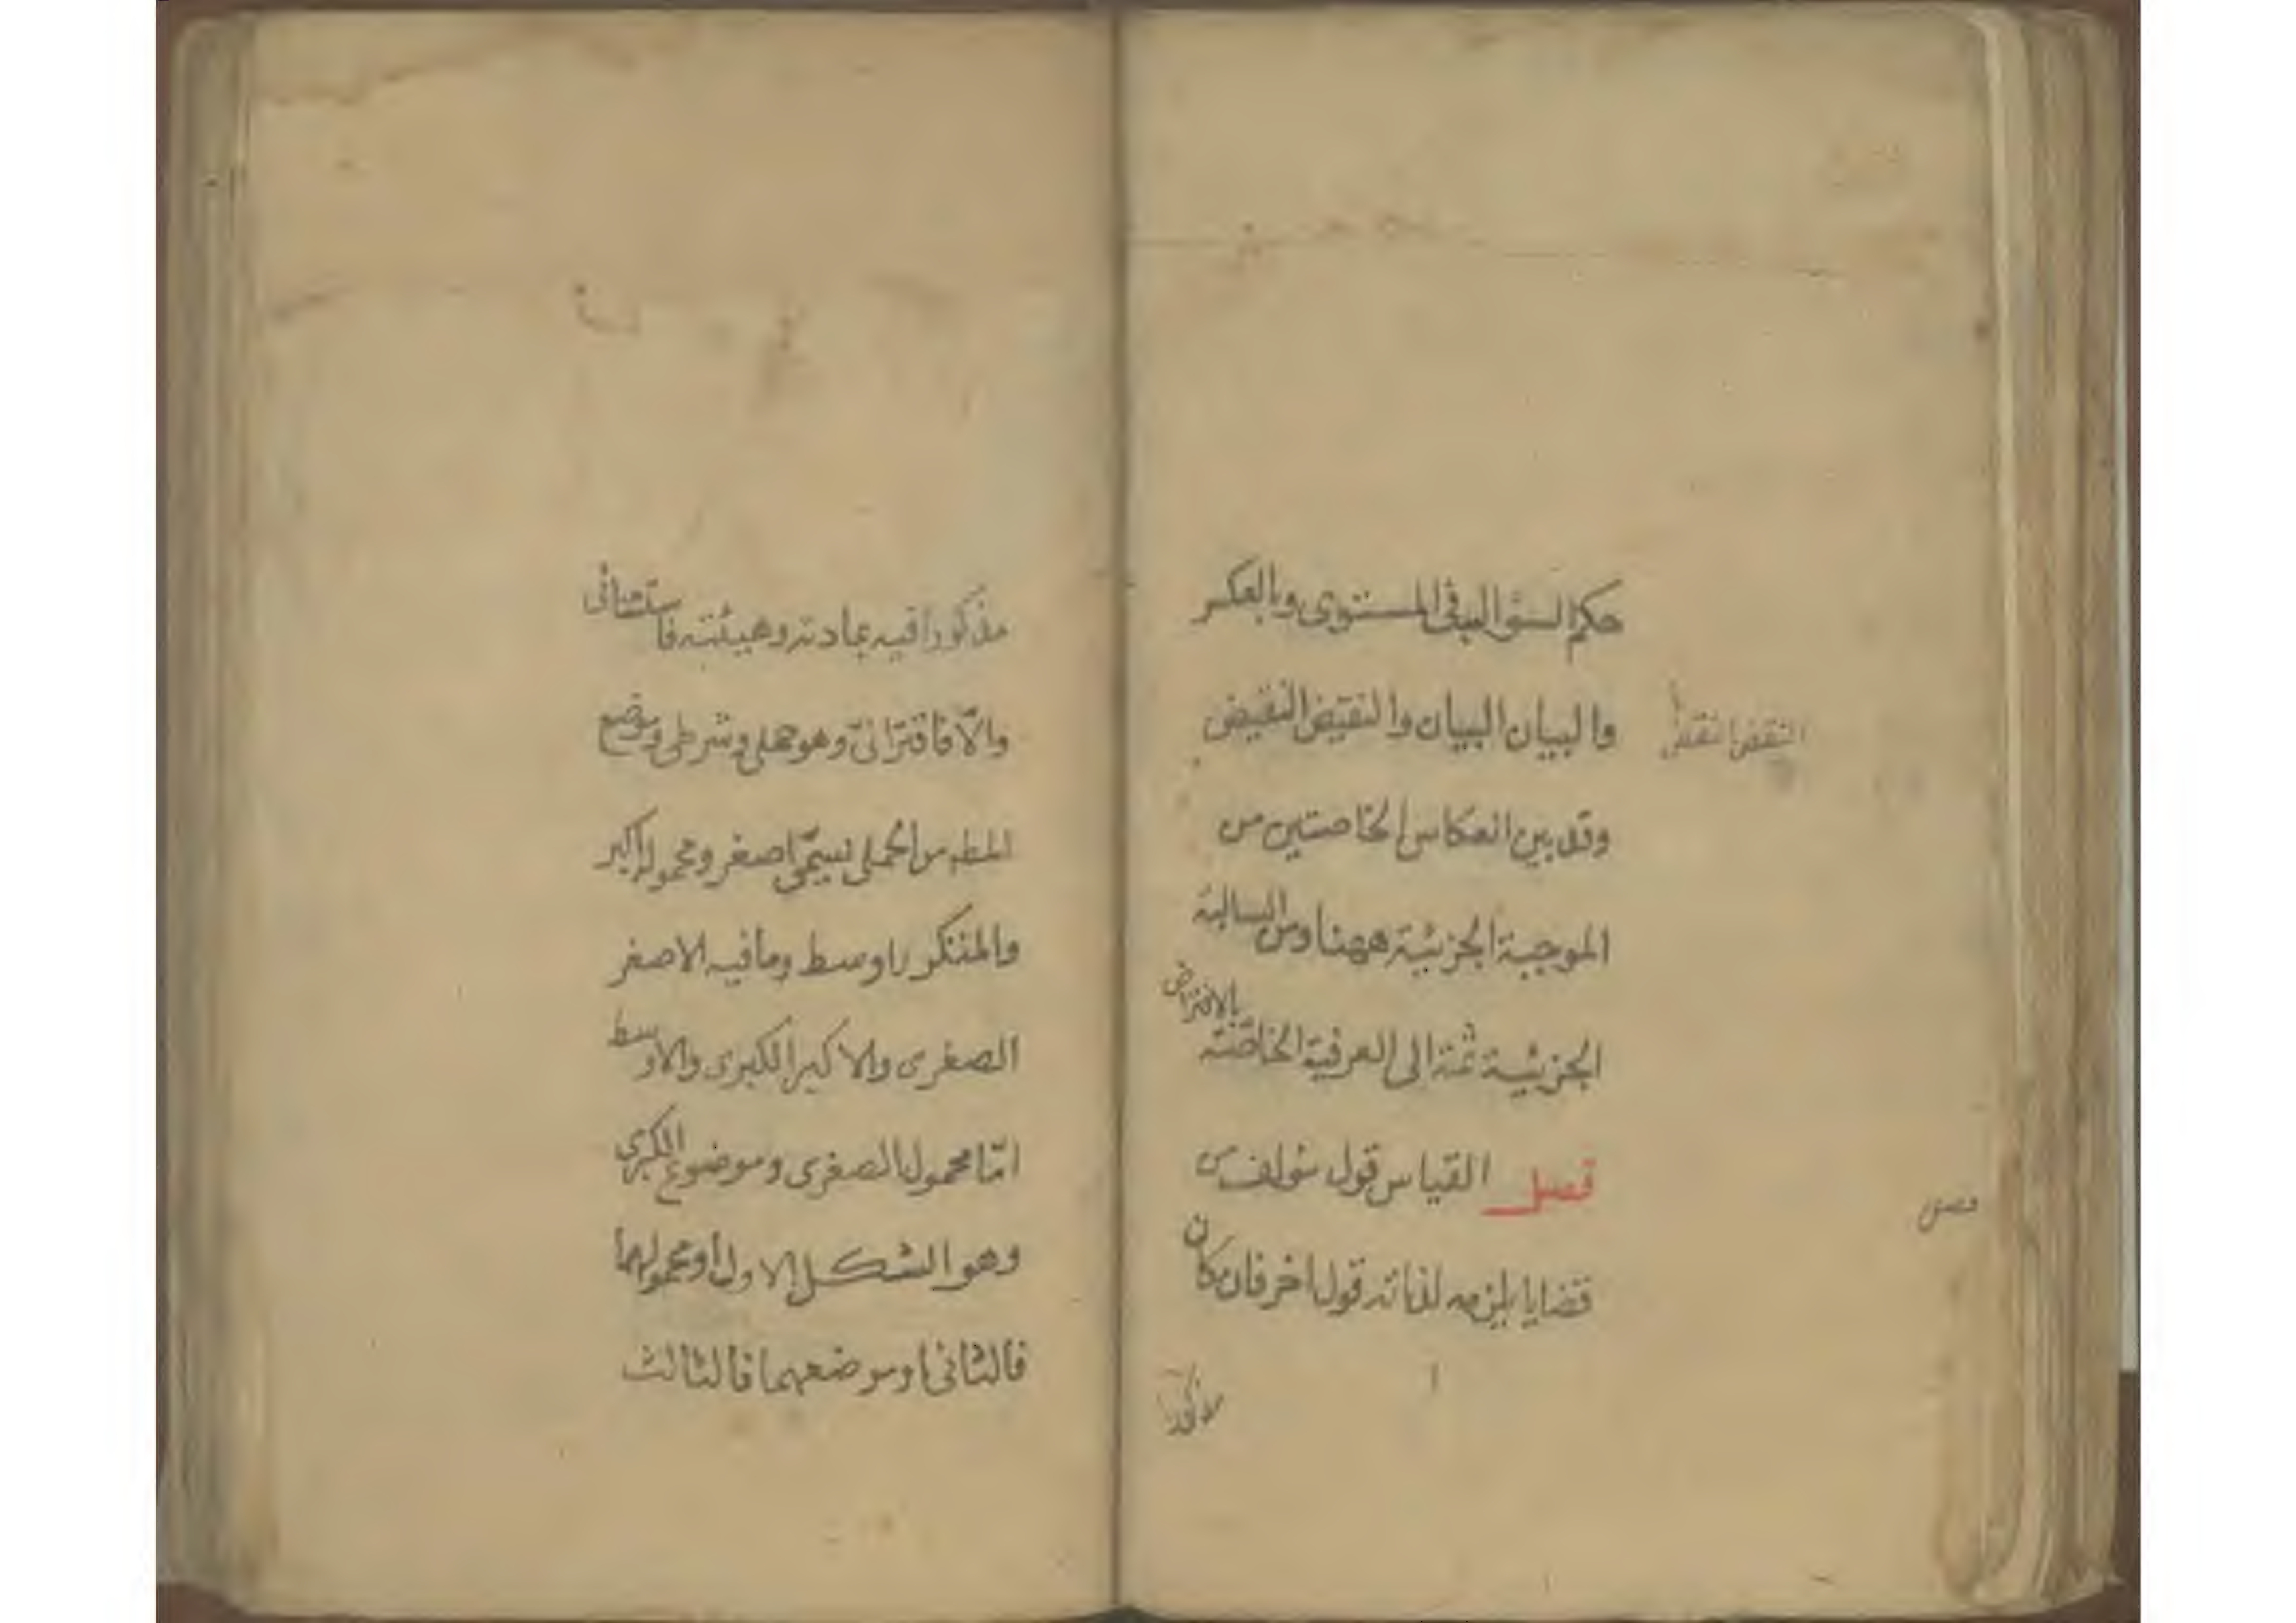 حكم السوالب في المستوى وبالعكس
والبيان البيان والنقيض النقيض
النقض النقض
وقد بين انعكاس الخاصتين من
الموجبة الجزئية ههنا ومن السالبة
الجزئية ثمة الى العرفية الخاصة بالافتراض
فصل القياس قول مؤلف من
قضايا يلزمه لذاته قول اخر فان كان
مذكورا
مذكورا فيه بمادته وهيئته فاستثنائى
والّا فاقترانىّ وهو حملى وشرطى وموضع
المط من الحملى يسمّى اصغر ومحموله اكبر
والمتكرر اوسط وما فيه الاصغر
الصغرى والاكبر الكبرى والاوسط
امّا محمول الصغرى وموضوع الكبرى
وهو الشكل الاول او محمولهما
فالثانى او موضعهما فالثالث